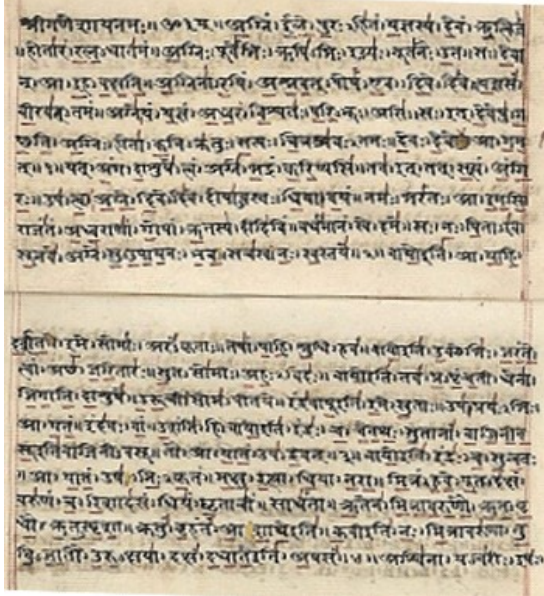 श्रीगणेशायनमः॥ॐ३म्॥ अग्निं। ईळे। पुरःऽहितं। यज्ञस्य। देवं। ऋत्विजं
॥होतारं। रत्नऽधातमं॥ अग्निः। पूर्वेभिः। ऋषिऽभिः। ईड्यः। नूतनैः। उत॥ सः। देवा
न्। आ। इह। वक्षति॥ अग्निना। रयिं। अश्नवत्। पोषं। एव। दिवेऽदिवे॥ यशसं
वीरवत्ऽतमं॥ अग्ने। यं। यज्ञं। अध्वरं। विश्वतः। परिऽभूः। असि॥ सः। इत्। देवेषु। ग
च्छति॥ अग्निः। होता। कविऽक्रतुः। सत्यः। चित्रश्रवःऽतमः॥ देवः। देवेभिः। आ। गम
त्॥१॥ यत्। अंग। दाशुषे। त्वं। अग्ने। भद्रं। करिष्यसि॥ तव। इत्। तत्। सत्यं। अंगि
रः॥ उप। त्वा। अग्ने। दिवेऽदिवे। दोषाऽवस्तः। धिया। वयं॥ नमः। भरंतः। आ। इमसि
राजंतं। अध्वराणां। गोपां। ऋतस्य। दीदिविं॥ वर्धमानं। स्वे। दमे॥ सः। नः। पिताऽइव
सूनवे। अग्ने। सुऽउपायनः। भव॥ सचस्व। नः। स्वस्तये॥२॥ वायोइति। आ। याहि।
दर्शत। इमे। सोमाः। अरंऽकृताः॥ तेषां। पाहि। श्रुधि। हवं॥ वायोइति। उक्थेभिः। जरंते
त्वां। अच्छ। जरितारः॥ सुतऽसोमाः। अहःऽविदः॥ वायोइति। तव। प्रऽपृंचती। धेना
जिगाति। दाशुषे॥ उरूची। सोमऽपीतये॥ इंद्रवायूइति। इमे। सुताः। उप। प्रयःऽभिः
आ। गतं॥ इंदवः। वां। उशंति। हि॥ वायोइति। इंद्रः। च। चेतथः। सुतानां। वाजिनीव
सूइतिवाजिनीऽवसू॥ तौ। आ। यातं। उप। द्रवत्॥३॥ वायोइति। इंद्रः। च। सुन्वतः
॥आ। यातं। उप। निःऽकृतं॥ मक्षु। इत्था। धिया। नरा॥ मित्रं। हुवे। पूतऽदक्षं
वरुणं। च। रिशादसं॥ धियं। घृताचीं। साधंता॥ ऋतेन। मित्रावरुणौ। ऋतऽवृ
धौ। ऋतऽस्पृशा॥ क्रतुं। बृहंतं। आशाथेइति॥ कवीइति। नः। मित्रावरुणा। तु
विऽजातौ। उरुऽक्षया॥ दक्षं। दधातेइति। अपसं॥४॥ अश्विना। यज्वरीः। इषः